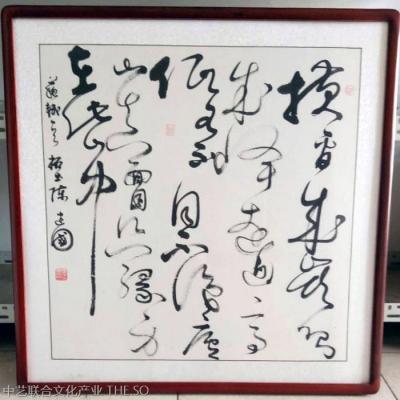 横看成岭侧
成峰远近高
低各不同不识庐
山真面目只缘身
在此山中
苏轼 陈建国
中艺联合文化产业 THE.SO